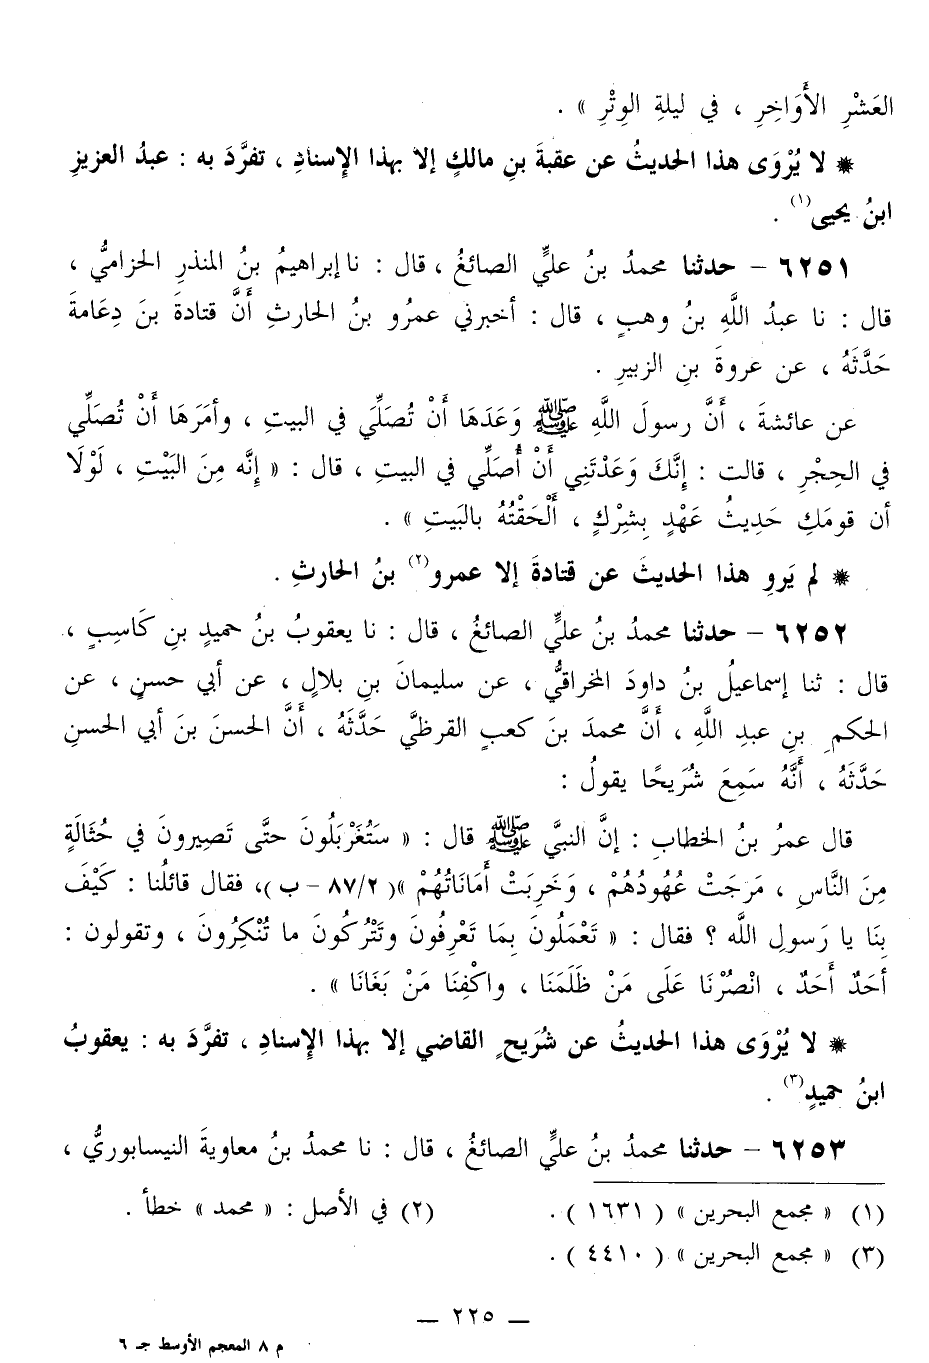 العَشْرِ الأَوَاخِرِ ، في ليلةِ الوِتْرِ » .
* لا يُرْوَى هذا الحديثُ عن عقبةَ بنِ مالكٍ إلا بهذا الإِسنادِ ، تفرَّدَ به : عبدُ العزيزِ
ابنُ يحيى(١) .
٦٢٥١ – حدثنا محمدُ بنُ عليٍّ الصائغُ ، قال : نا إبراهيمُ بنُ المنذرِ الحزاميُّ ،
قال : نا عبدُ اللَّهِ بنُ وهبٍ ، قال : أخبرني عمرُو بنُ الحارثِ أَنَّ قتادةَ بنَ دِعَامةَ
حَدَّثَهُ ، عن عروةَ بنِ الزبيرِ .
عن عائشةَ ، أَنَّ رسولَ اللَّهِ ﷺ وَعَدَهَا أَنْ تُصَلِّيَ في البيتِ ، وأمَرَهَا أَنْ تُصَلِّي
في الحِجْرِ ، قالت : إِنَّكَ وَعَدْتَنِي أَنْ أُصَلِّي في البيتِ ، قال : « إِنَّه مِنَ البَيْتِ ، لَوْلَا
أن قومَكِ حَدِيثُ عَهْدٍ بِشِرْكٍ ، أَلْحَقْتُهُ بالبَيتِ » .
* لم يَروِ هذا الحديثَ عن قتادةَ إلا عمرو(٢) بنُ الحارثِ .
٦٢٥٢ – حدثنا محمدُ بنُ عليٍّ الصائغُ ، قال : نا يعقوبُ بنُ حميدِ بنِ كَاسِبٍ ،
قال : ثنا إسماعيلُ بنُ داودَ المخراقيُّ ، عن سليمانَ بنِ بلالٍ ، عن أبي حسنٍ ، عن
الحكمِ بنِ عبدِ اللَّهِ ، أَنَّ محمدَ بنَ كعبٍ القرظيَّ حَدَّثَهُ ، أَنَّ الحسنَ بنَ أبي الحسنِ
حَدَّثَهُ ، أَنَّهُ سَمِعَ شُرَيحًا يقولُ :
قال عمرُ بنُ الخطابِ : إنَّ النبيَّ ﷺ قال : « سَتُغَرْبَلُونَ حتَّى تَصِيرونَ في حُثَالَةٍ
مِنَ النَّاسِ ، مَرَجَتْ عُهُودُهُمْ ، وَخَرِبَتْ أَمَانَاتُهُمْ »( ٨٧/٢ – ب )، فقال قائلُنا : كَيْفَ
بِنَا يا رَسولِ الله ؟ فقال : « تَعْمَلُونَ بِمَا تَعْرِفُونَ وتَتْرِكُونَ ما تُنْكِرُونَ ، وتقولون :
أحَدٌ أَحَدٌ ، انْصُرْنَا عَلَى مَنْ ظَلَمَنَا ، واكْفِنَا مَنْ بَغَانَا » .
* لا يُرْوَى هذا الحديثُ عن شُرَيحٍ القاضي إلا بهذا الإِسنادِ ، تفرَّدَ به : يعقوبُ
ابنُ حميدٍ(٣) .
٦٢٥٣ – حدثنا محمدُ بنُ عليٍّ الصائغُ ، قال : نا محمدُ بنُ معاويةَ النيسابوريُّ ،
(١) « مجمع البحرين » ( ١٦٣١ ) . (٢) في الأصل : « محمد » خطأ .
(٣) « مجمع البحرين » ( ٤٤١٠ ) .
— ٢٢٥ —
م ٨ المعجم الأوسط جـ ٦